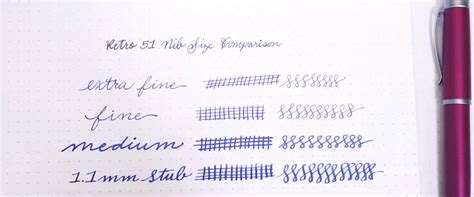 Retro 51 Nib Size Comparison
extra fine
fine
medium
1.1mm stub